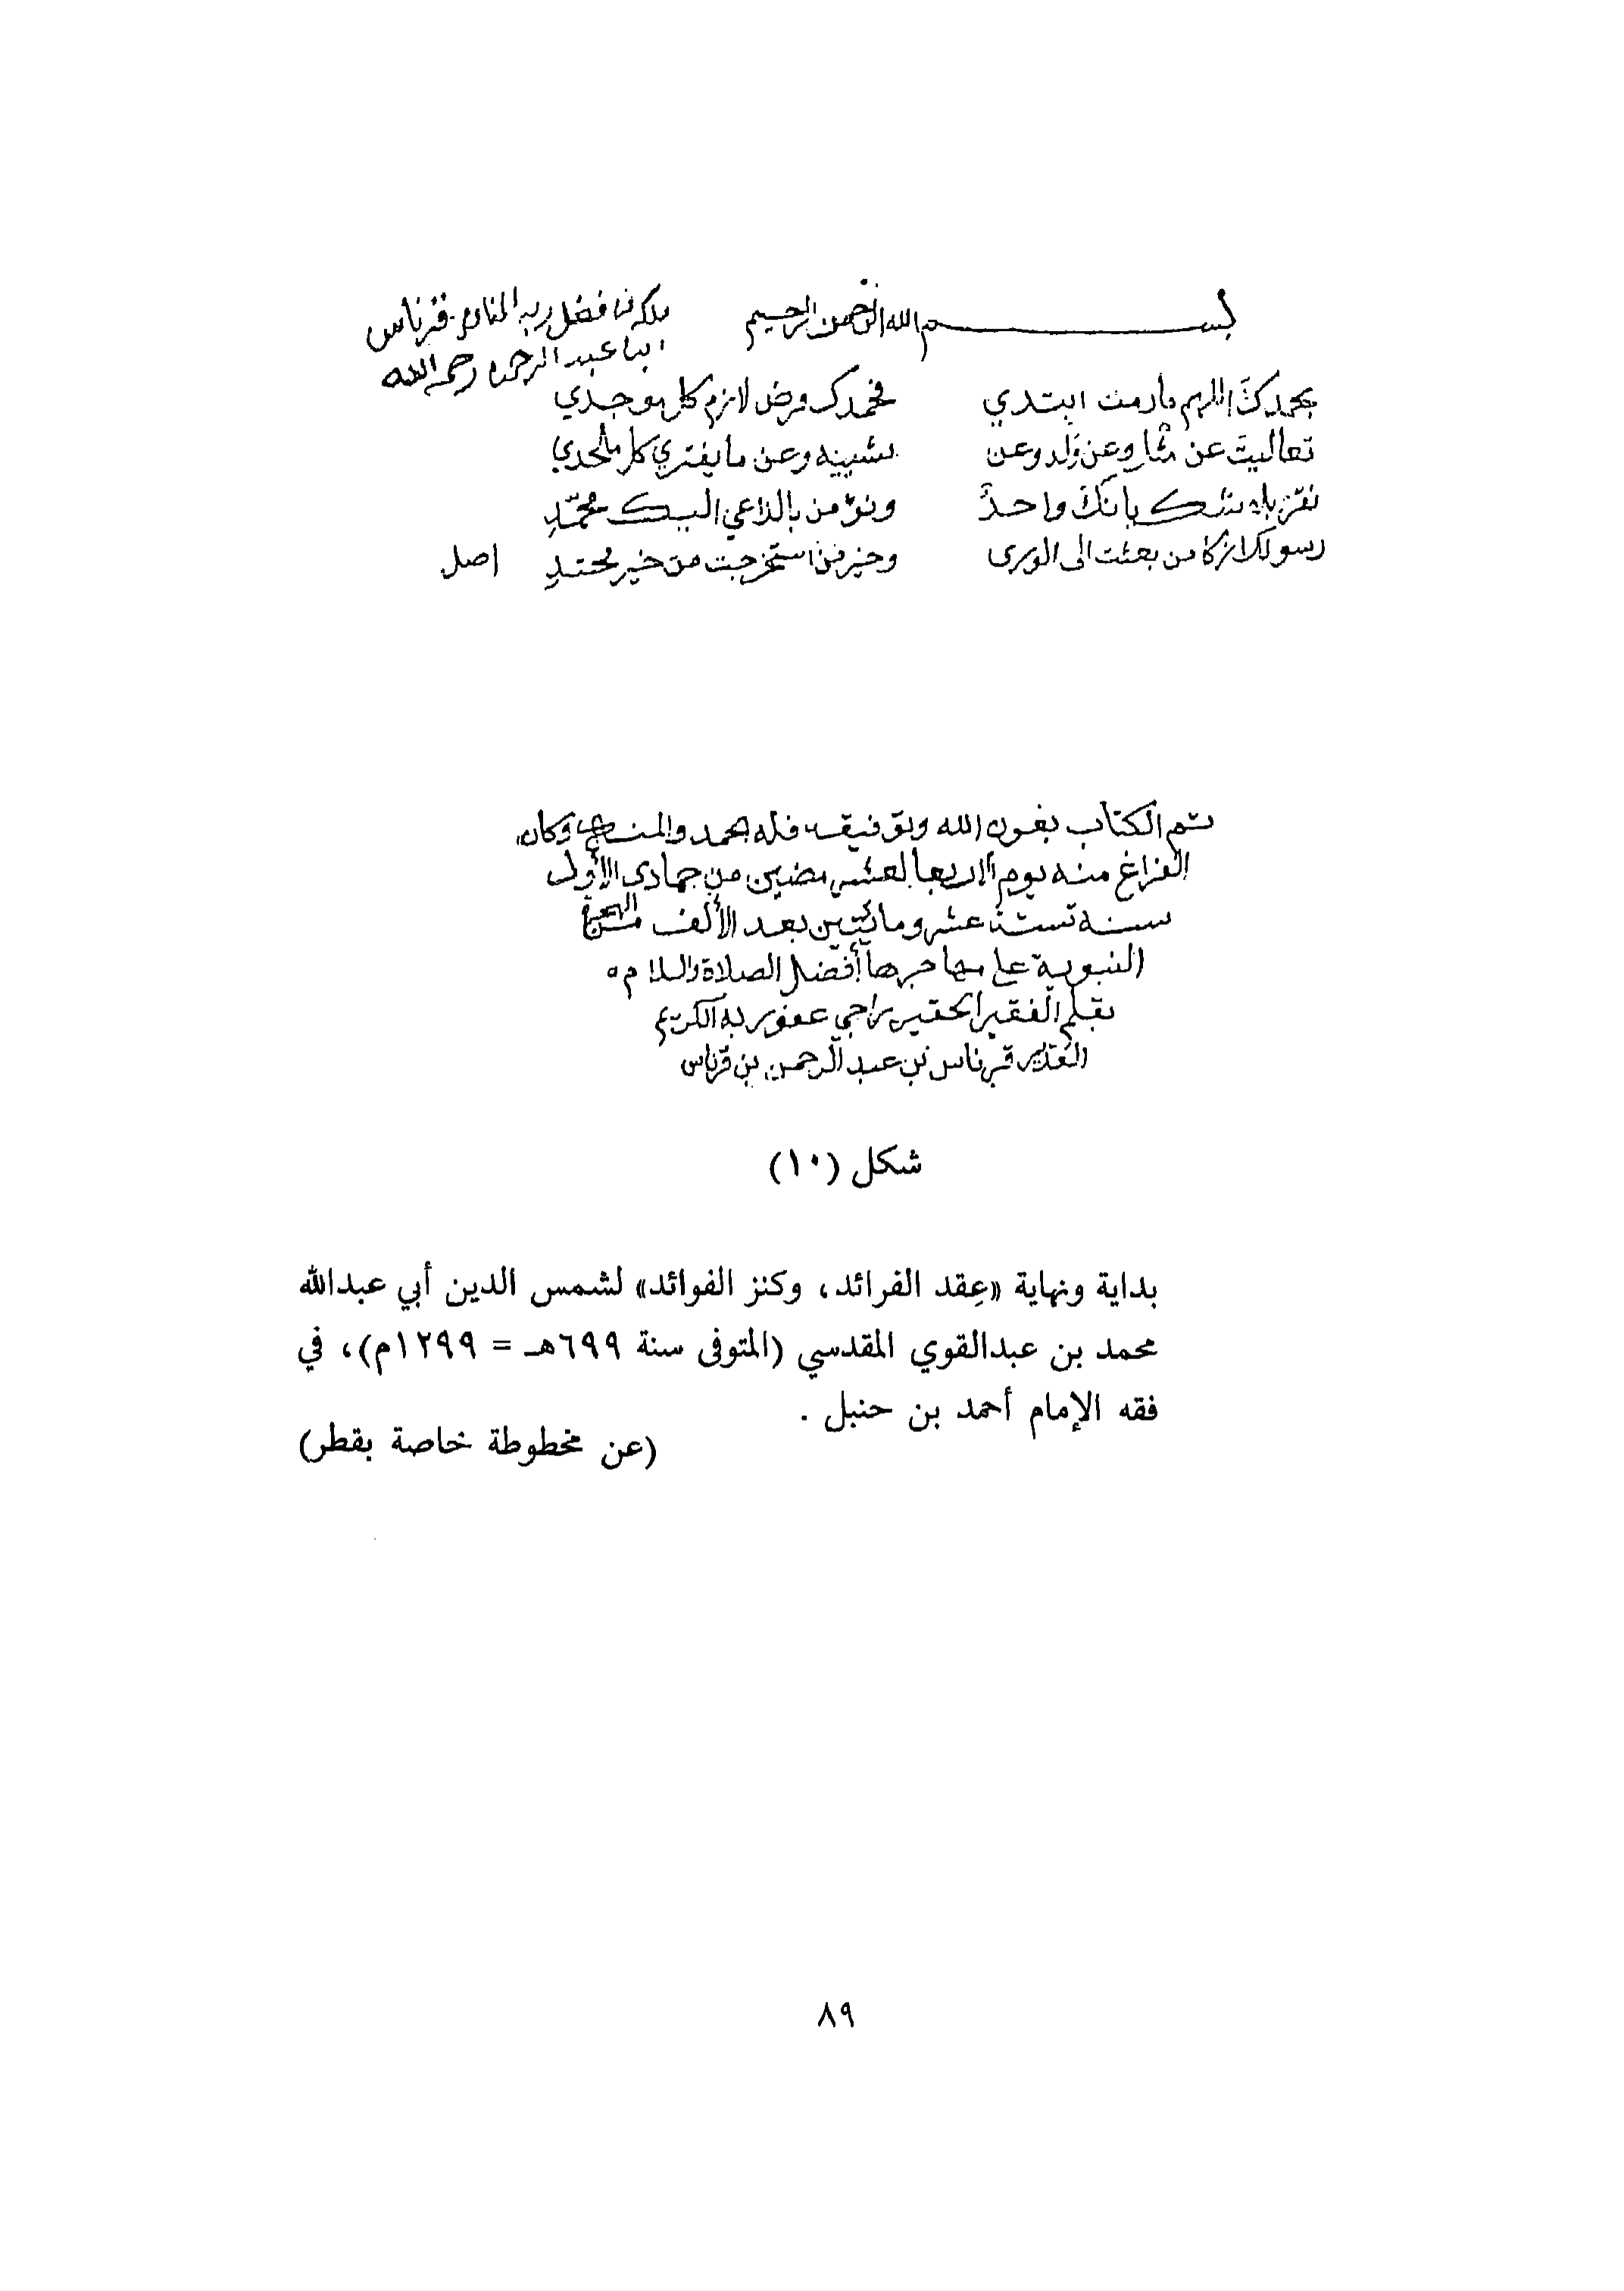 بسم الله الرحمن الرحيم
ملكه من فضل ربه المنان قرناس
ابن عبد الرحمن رحمه الله
بحمدك اللهم ما رمت ابتدي فحمدك فرض لازم كل موجدي
تعاليت عن مثل وعن ولد وعن تشبيه وعن ما يفتري كل ملحدي
نقر بلا شك بانك واحد ونؤمن بالداعي اليك محمد
رسولك ازكا من بعثت الى الورى وخير من استخرجت من خير محتد اصل
تم الكتاب بعون الله وتوفيقه فله الحمد والمنة وكان
الفراغ منه يوم الاربعا لعشر مضين من جمادى الأول
سنة ستة عشر ومائتين بعد الألف من الهجرة
النبوية على مهاجرها أفضل الصلاة والسلام
بقلم الفقير الحقير راجي عفو ربه الكريم
القدير قرناس بن عبد الرحمن بن قرناس
شكل (١٠)
بداية ونهاية «عِقد الفرائد، وكنز الفوائد» لشمس الدين أبي عبدالله
محمد بن عبدالقوي المقدسي (المتوفى سنة ٦٩٩هـ = ١٢٩٩م)، في
فقه الإمام أحمد بن حنبل .
(عن مخطوطة خاصة بقطر)
٨٩